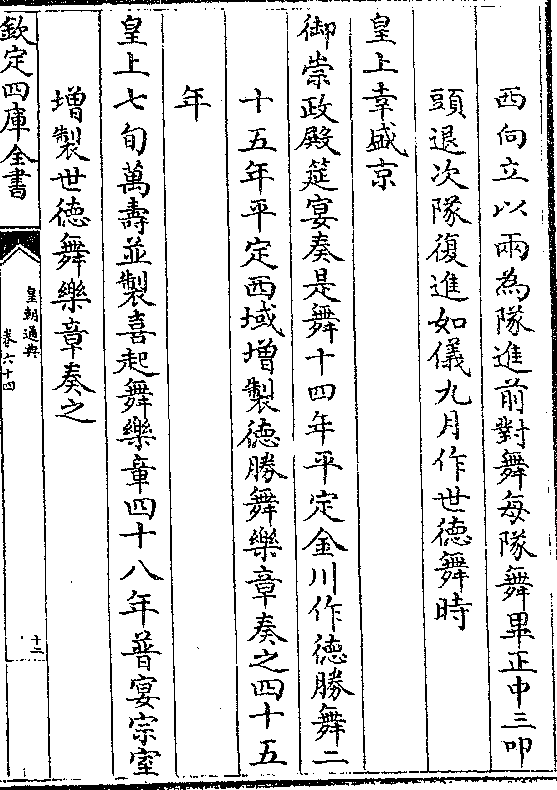 西向立以兩為隊進前對舞每隊舞畢正中三叩
頭退次隊復進如儀九月作世徳舞時
皇上幸盛京
御崇政殿筵宴奏是舞十四年平定金川作徳勝舞二
十五年平定西域増製徳勝舞樂章奏之四十五
年
皇上七旬萬壽並製喜起舞樂章四十八年普宴宗室
増製世徳舞樂章奏之
欽定四庫全書
皇朝通典
卷六十四
十二